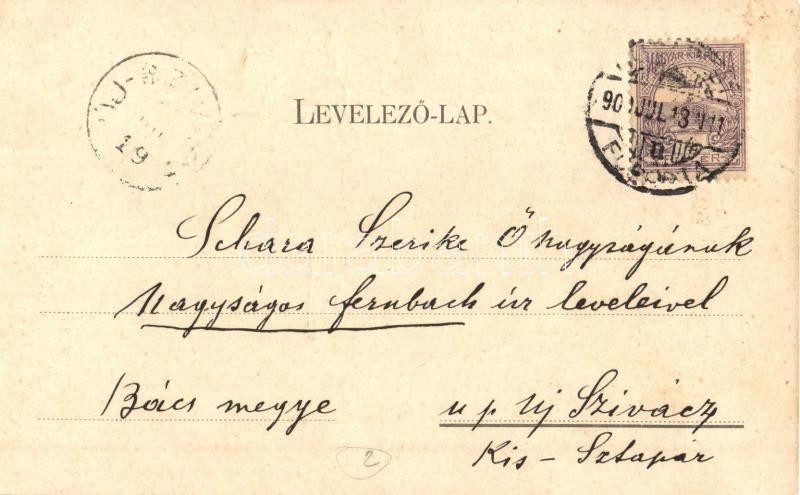 LEVELEZŐ-LAP.
ÚJ-SZIV
19
901 JUL 13
Schara Szerike Ő nagyságának
Nagyságos fernbach úr leveleivel
Bács megye
u p Uj Szivácz
Kis - Sztapár
2